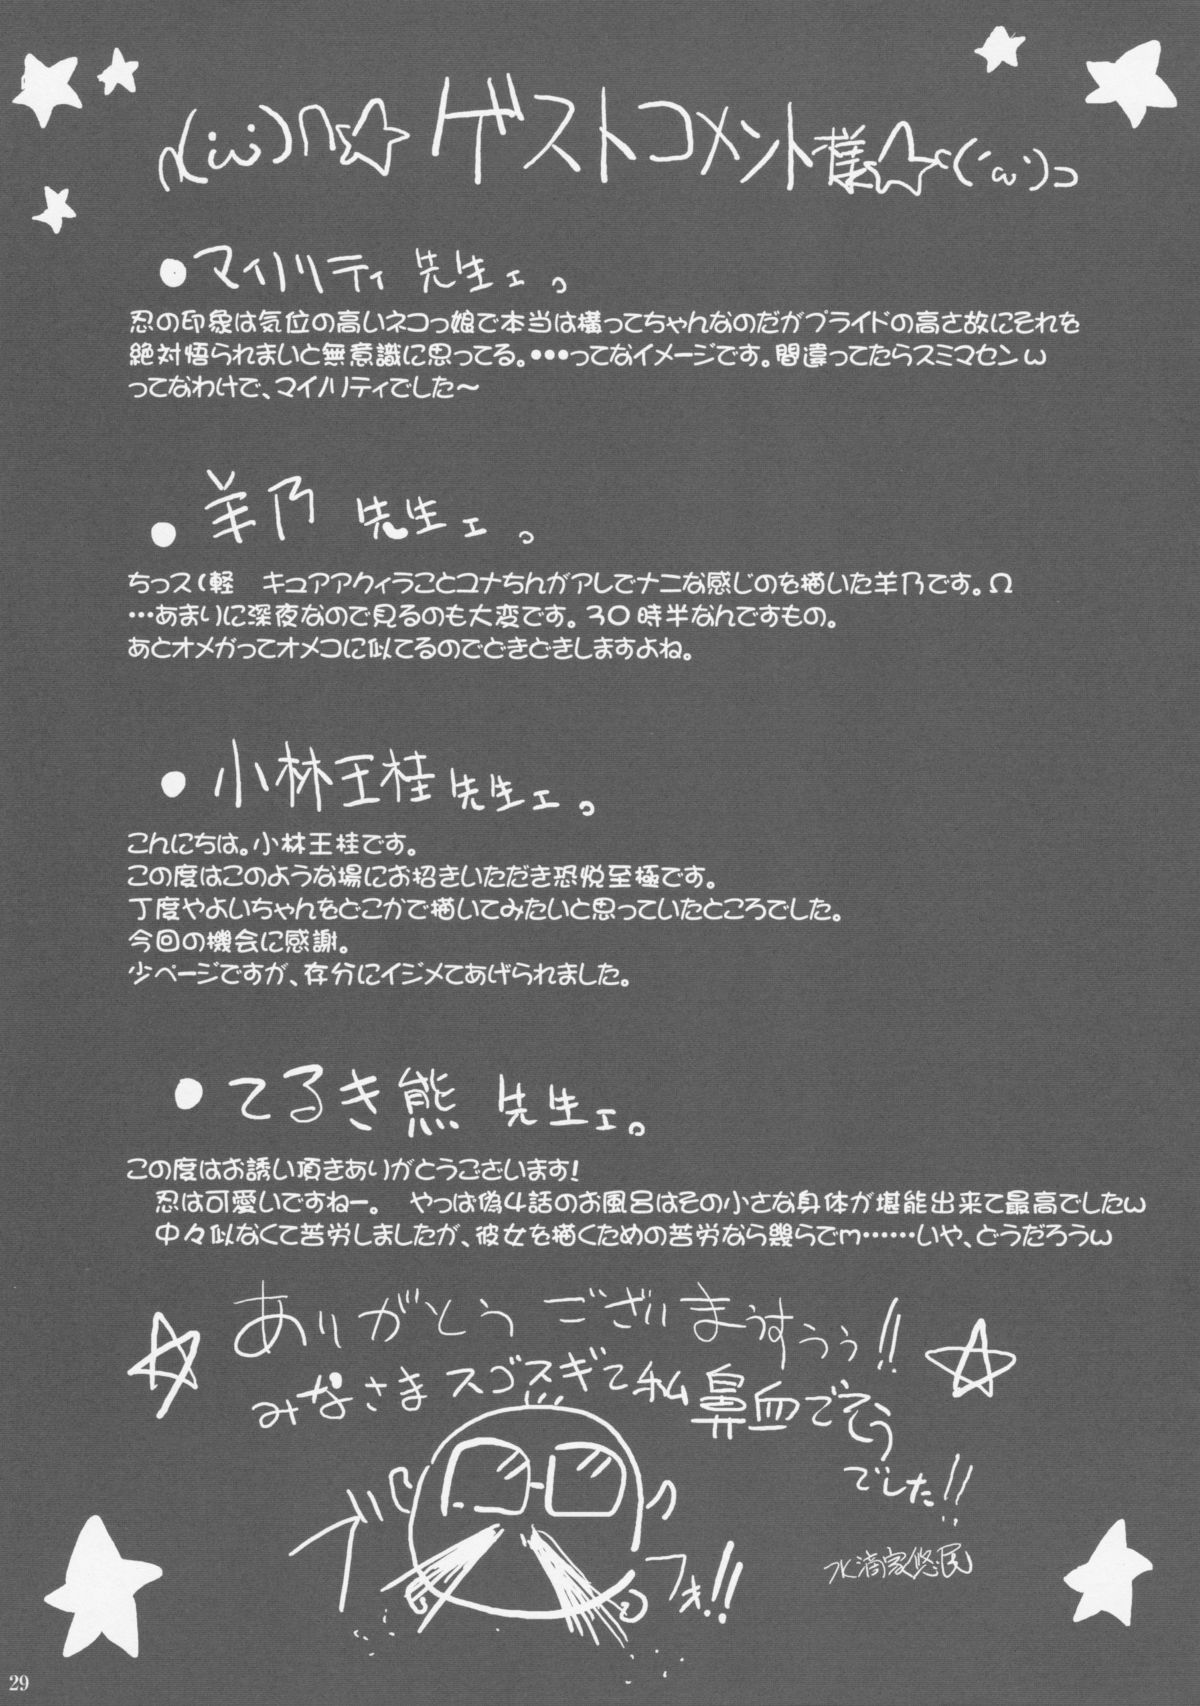 ∩(;ω;)∩☆ ゲストコメント様☆⊂(´ω`)⊃
●マイノリティ 先生ェっ
忍の印象は気位の高いネコっ娘で本当は構ってちゃんなのだがプライドの高さ故にそれを
絶対悟られまいと無意識に思ってる。・・・ってなイメージです。間違ってたらスミマセンω
ってなわけで、マイノリティでした～
●羊乃 先生ェっ
ちっス(軽　キュアアクィラことユナちんがアレでナニな感じのを描いた羊乃です。Ω
…あまりに深夜なので見るのも大変です。30時半なんですもの。
あとオメガってオメコに似てるのでどきどきしますよね。
●小林王桂 先生ェっ
こんにちは。小林王桂です。
この度はこのような場にお招きいただき恐悦至極です。
丁度やよいちゃんをどこかで描いてみたいと思っていたところでした。
今回の機会に感謝。
少ページですが、存分にイジメてあげられました。
●てるき熊 先生ェ。
この度はお誘い頂きありがとうございます!
忍は可愛いですねー。　やっぱ偽4話のお風呂はその小さな身体が堪能出来て最高でしたω
中々似なくて苦労しましたが、彼女を描くための苦労なら幾らでm……いや、どうだろうω
ありがとうございまぅすぅぅ!!
みなさまスゴスギて私鼻血でそう
でした!!
ブ
フォ!!
水滴家悠民
29